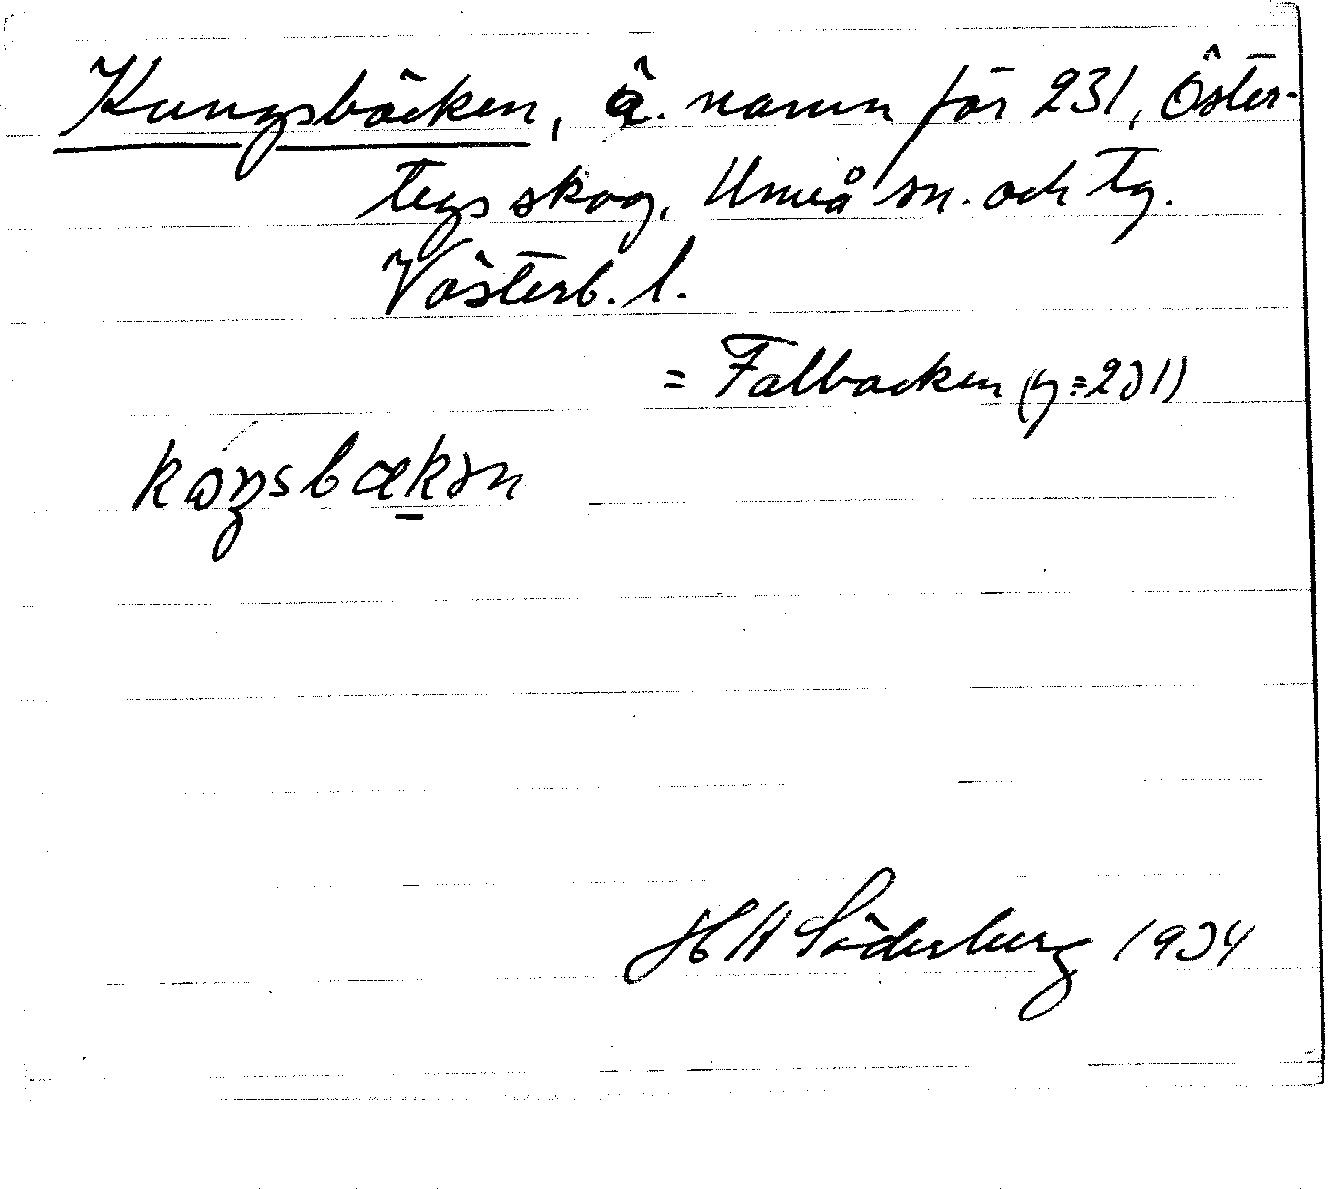 Kungsbäcken, ä. namn för 231, Öster-
tegs skog, Umeå sn. och tg.
Västerb. l.
= Falbacken (y = 231)
kɷŋsbækən
H A Söderberg 1934